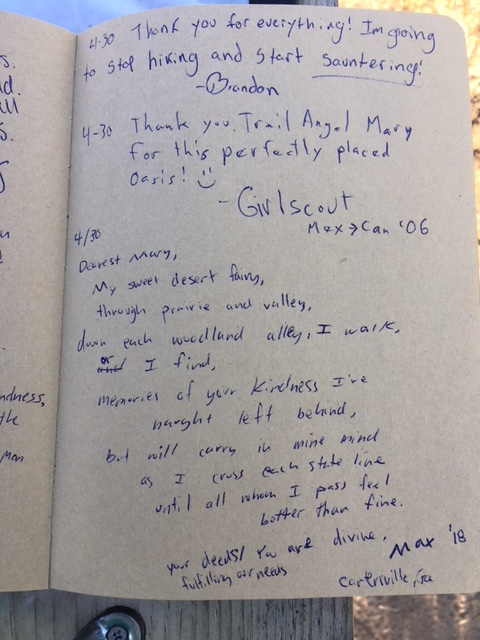 s.
d.
all
s.
ndness,
the
Man
4-30 Thank you for everything! Im going
to stop hiking and start sauntering!
-Brandon
4-30 Thank you Trail Angel Mary
for this perfectly placed
Oasis! :)
- Girlscout
Mex→Can '06
4/30
Dearest Mary,
My sweet desert fairy,
through prairie and valley,
down each woodland alley, I walk,
or I find,
memories of your kindness I've
naught left behind,
but will carry in mine mind
as I cross each state line
until all whom I pass feel
better than fine.
your deeds! You are divine.
fulfilling our needs
Max '18
Cartersville, Ga